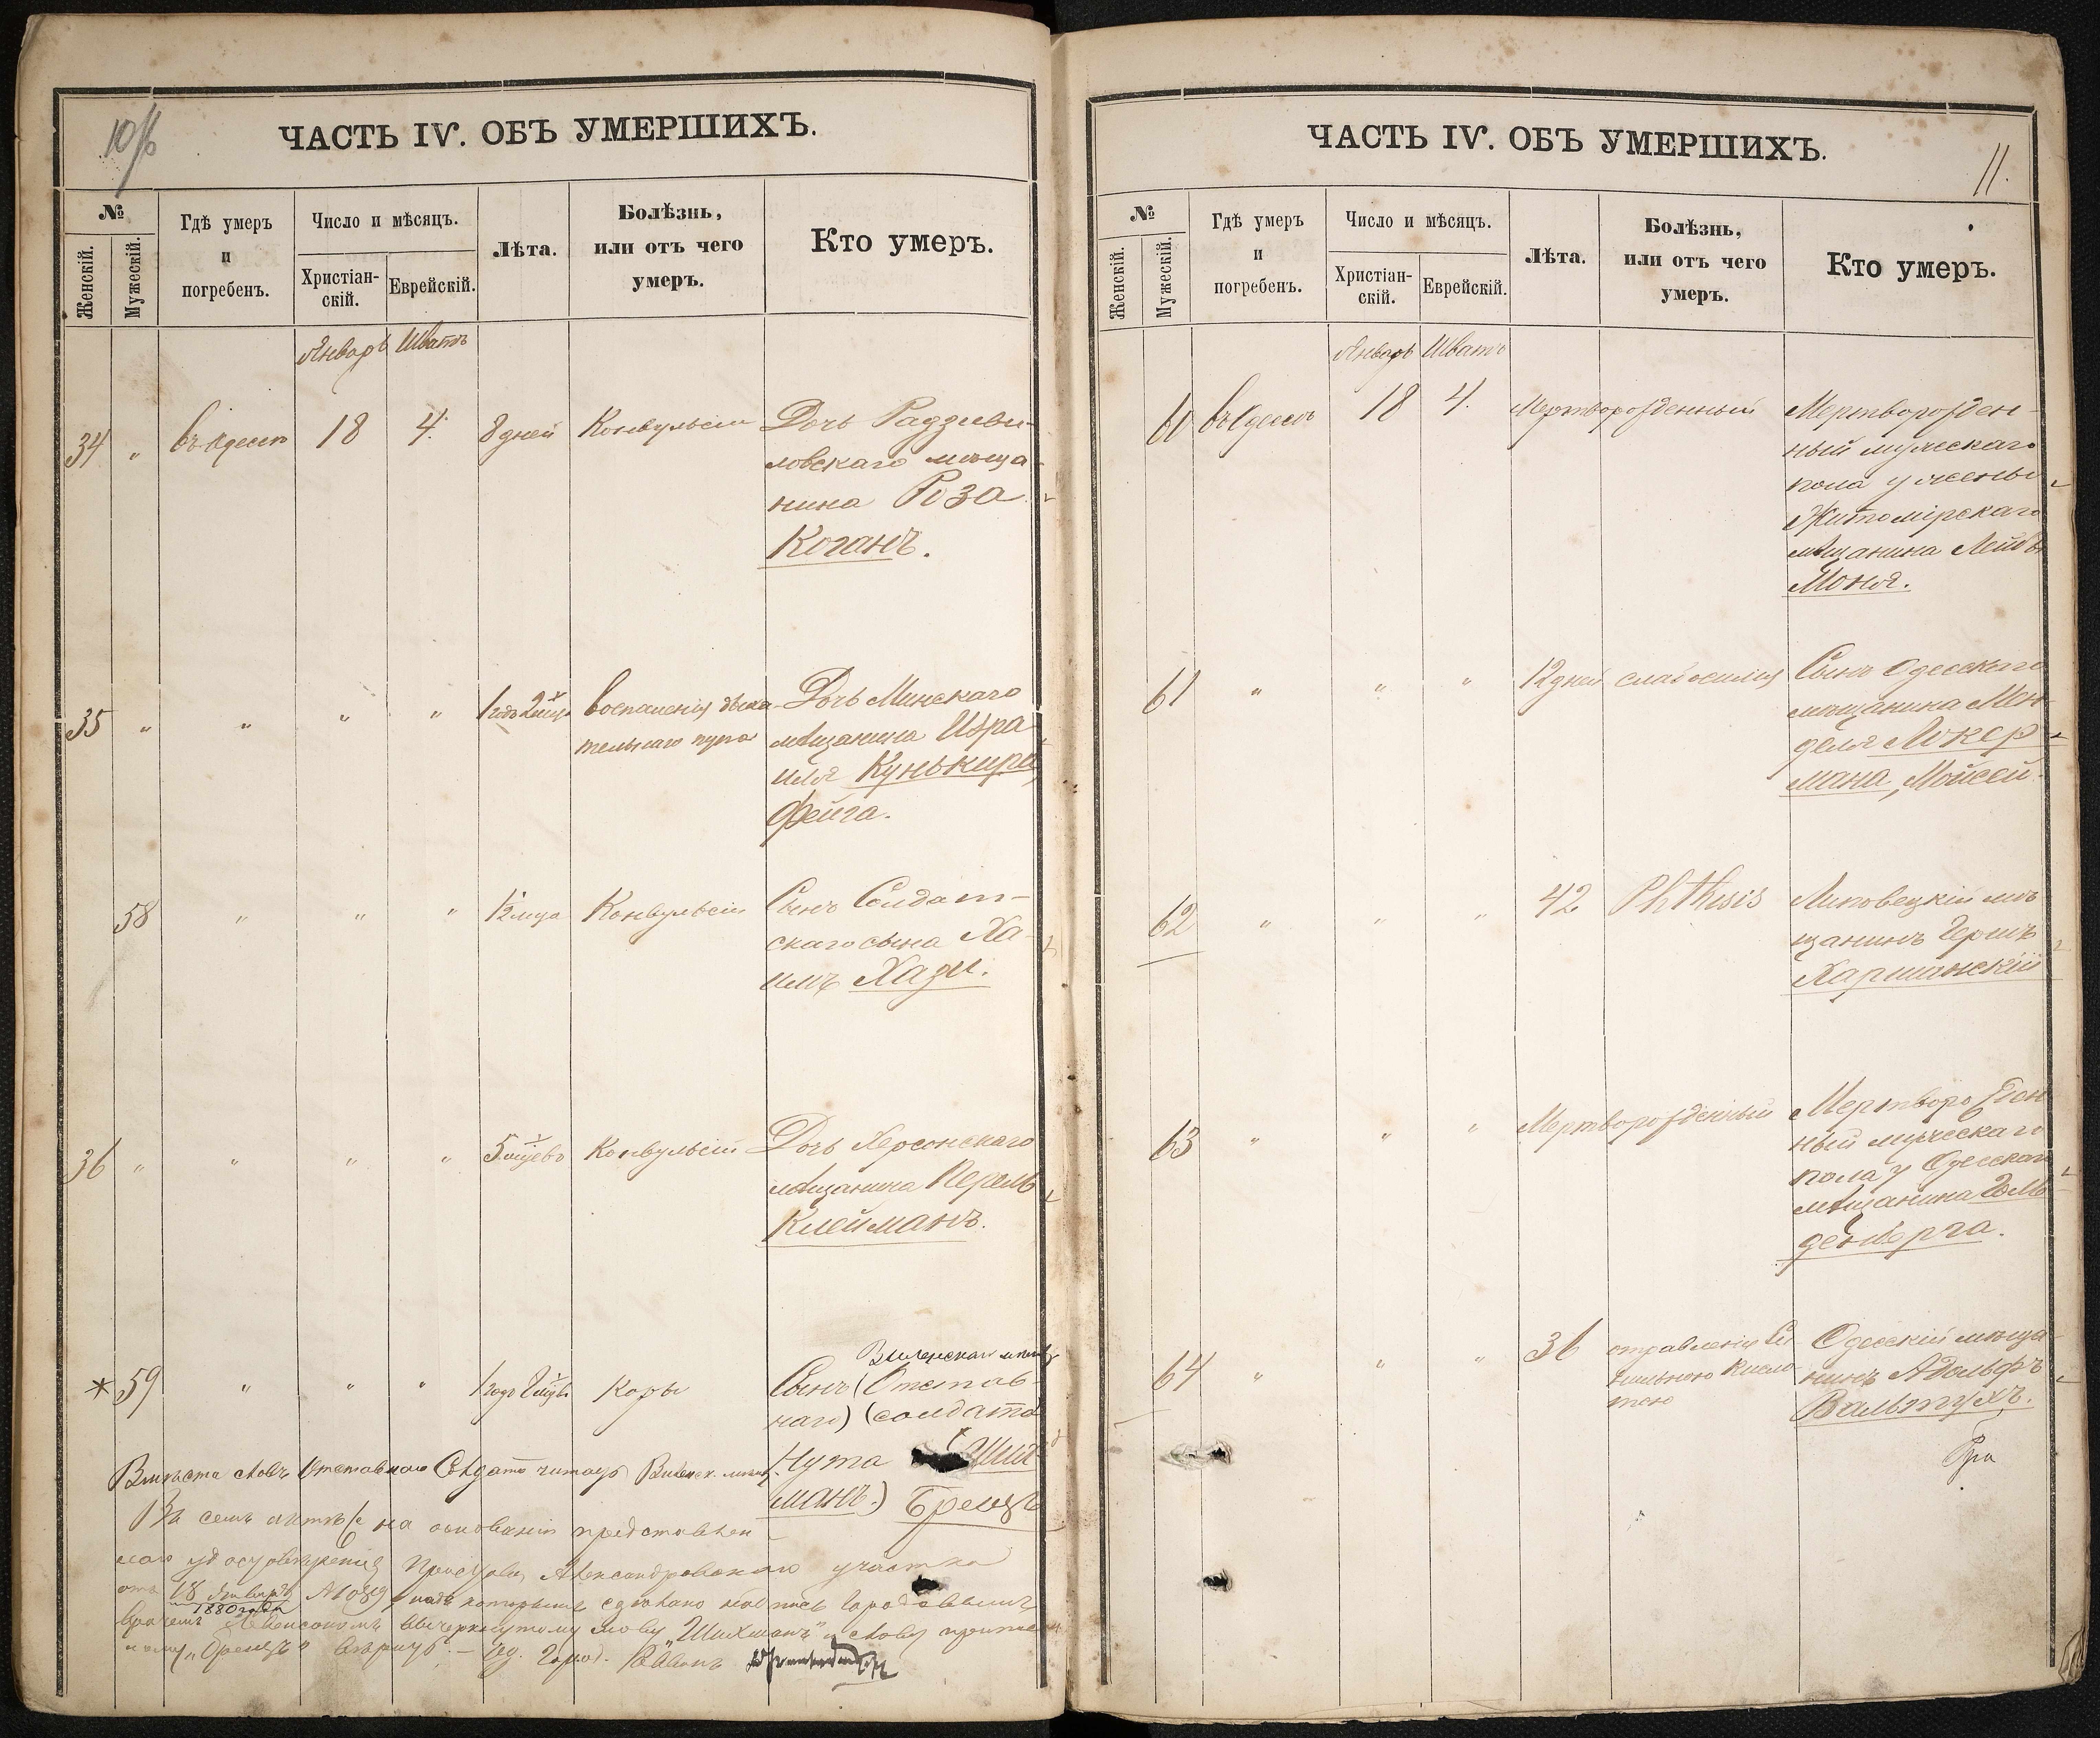 10/б
ЧАСТЬ IV. ОБЪ УМЕРШИХЪ.
№
Женскій.
Мужескій.
Гдѣ умеръ
и
погребенъ.
Число и мѣсяцъ.
Христіан-
скій.
Еврейскій.
Лѣта.
Болѣзнь,
или отъ чего
умеръ.
Кто умеръ.
Январь Шватъ
34 " въ Одессѣ 18 4. 8 дней Конвульсіи Дочь Радзиви-
ловскаго мѣща-
нина Роза
Коганъ.
35 " " " " 1 годъ 2 мца воспаленія дыха- Дочь Минскаго
тельнаго пути мѣщанина Изра-
иля Кунькира,
Фейга.
58 " " " 1½ мца Конвульсіи Сынъ Солдат-
скаго сына Ха-
имъ Хази.
36 " " " " 5 мцевъ Конвульсіи Дочь Херсонскаго
мѣщанина Перль
Клейманъ.
Виленскаго мѣщ
* 59 " " " 1 годъ 2 мцевъ Корь Сынъ (Отстав-
наго) (солдата
Нута Ших-
манъ.) Бренцъ
Вмѣсто словъ Отставнаго Солдата читать Виленск. мѣщ.
Въ семъ актѣ на основаніи представлен-
наго удостовѣренія Пристава Александровскаго участка
отъ 18 Января
1880 года
надъ которымъ сдѣлано надпись Городовымъ
врачемъ вычеркнутому слову „Шихманъ" и слову припи
„Бренцъ" вѣрить. — Од. Город. Раввинъ
ЧАСТЬ IV. ОБЪ УМЕРШИХЪ.
11.
№
Женскій.
Мужескій.
Гдѣ умеръ
и
погребенъ.
Число и мѣсяцъ.
Христіан-
скій.
Еврейскій.
Лѣта.
Болѣзнь,
или отъ чего
умеръ.
Кто умеръ.
Январь Шватъ
60 въ Одессѣ 18 4. Мертворожденный Мертворожден-
ный мужескаго
пола у жены
Житомірскаго
мѣщанина Лейбы
Моня.
61 " " " 12 дней слабосилія Сынъ Одесскаго
мѣщанина Мен-
деля Локер-
мана, Мойсей.
62 " " " 42 Phthisis Липовецкій мѣ-
щанинъ Гершъ
Харшанскій
63 " " " Мертворожденный Мертворожден-
ный мужескаго
пола у Одесскаго
мѣщанина Голь-
денберга.
64 " " " 36 отравленія Си- Одесскій мѣща-
нильною кисло- нинъ Адольфъ
тою Вальтухъ.